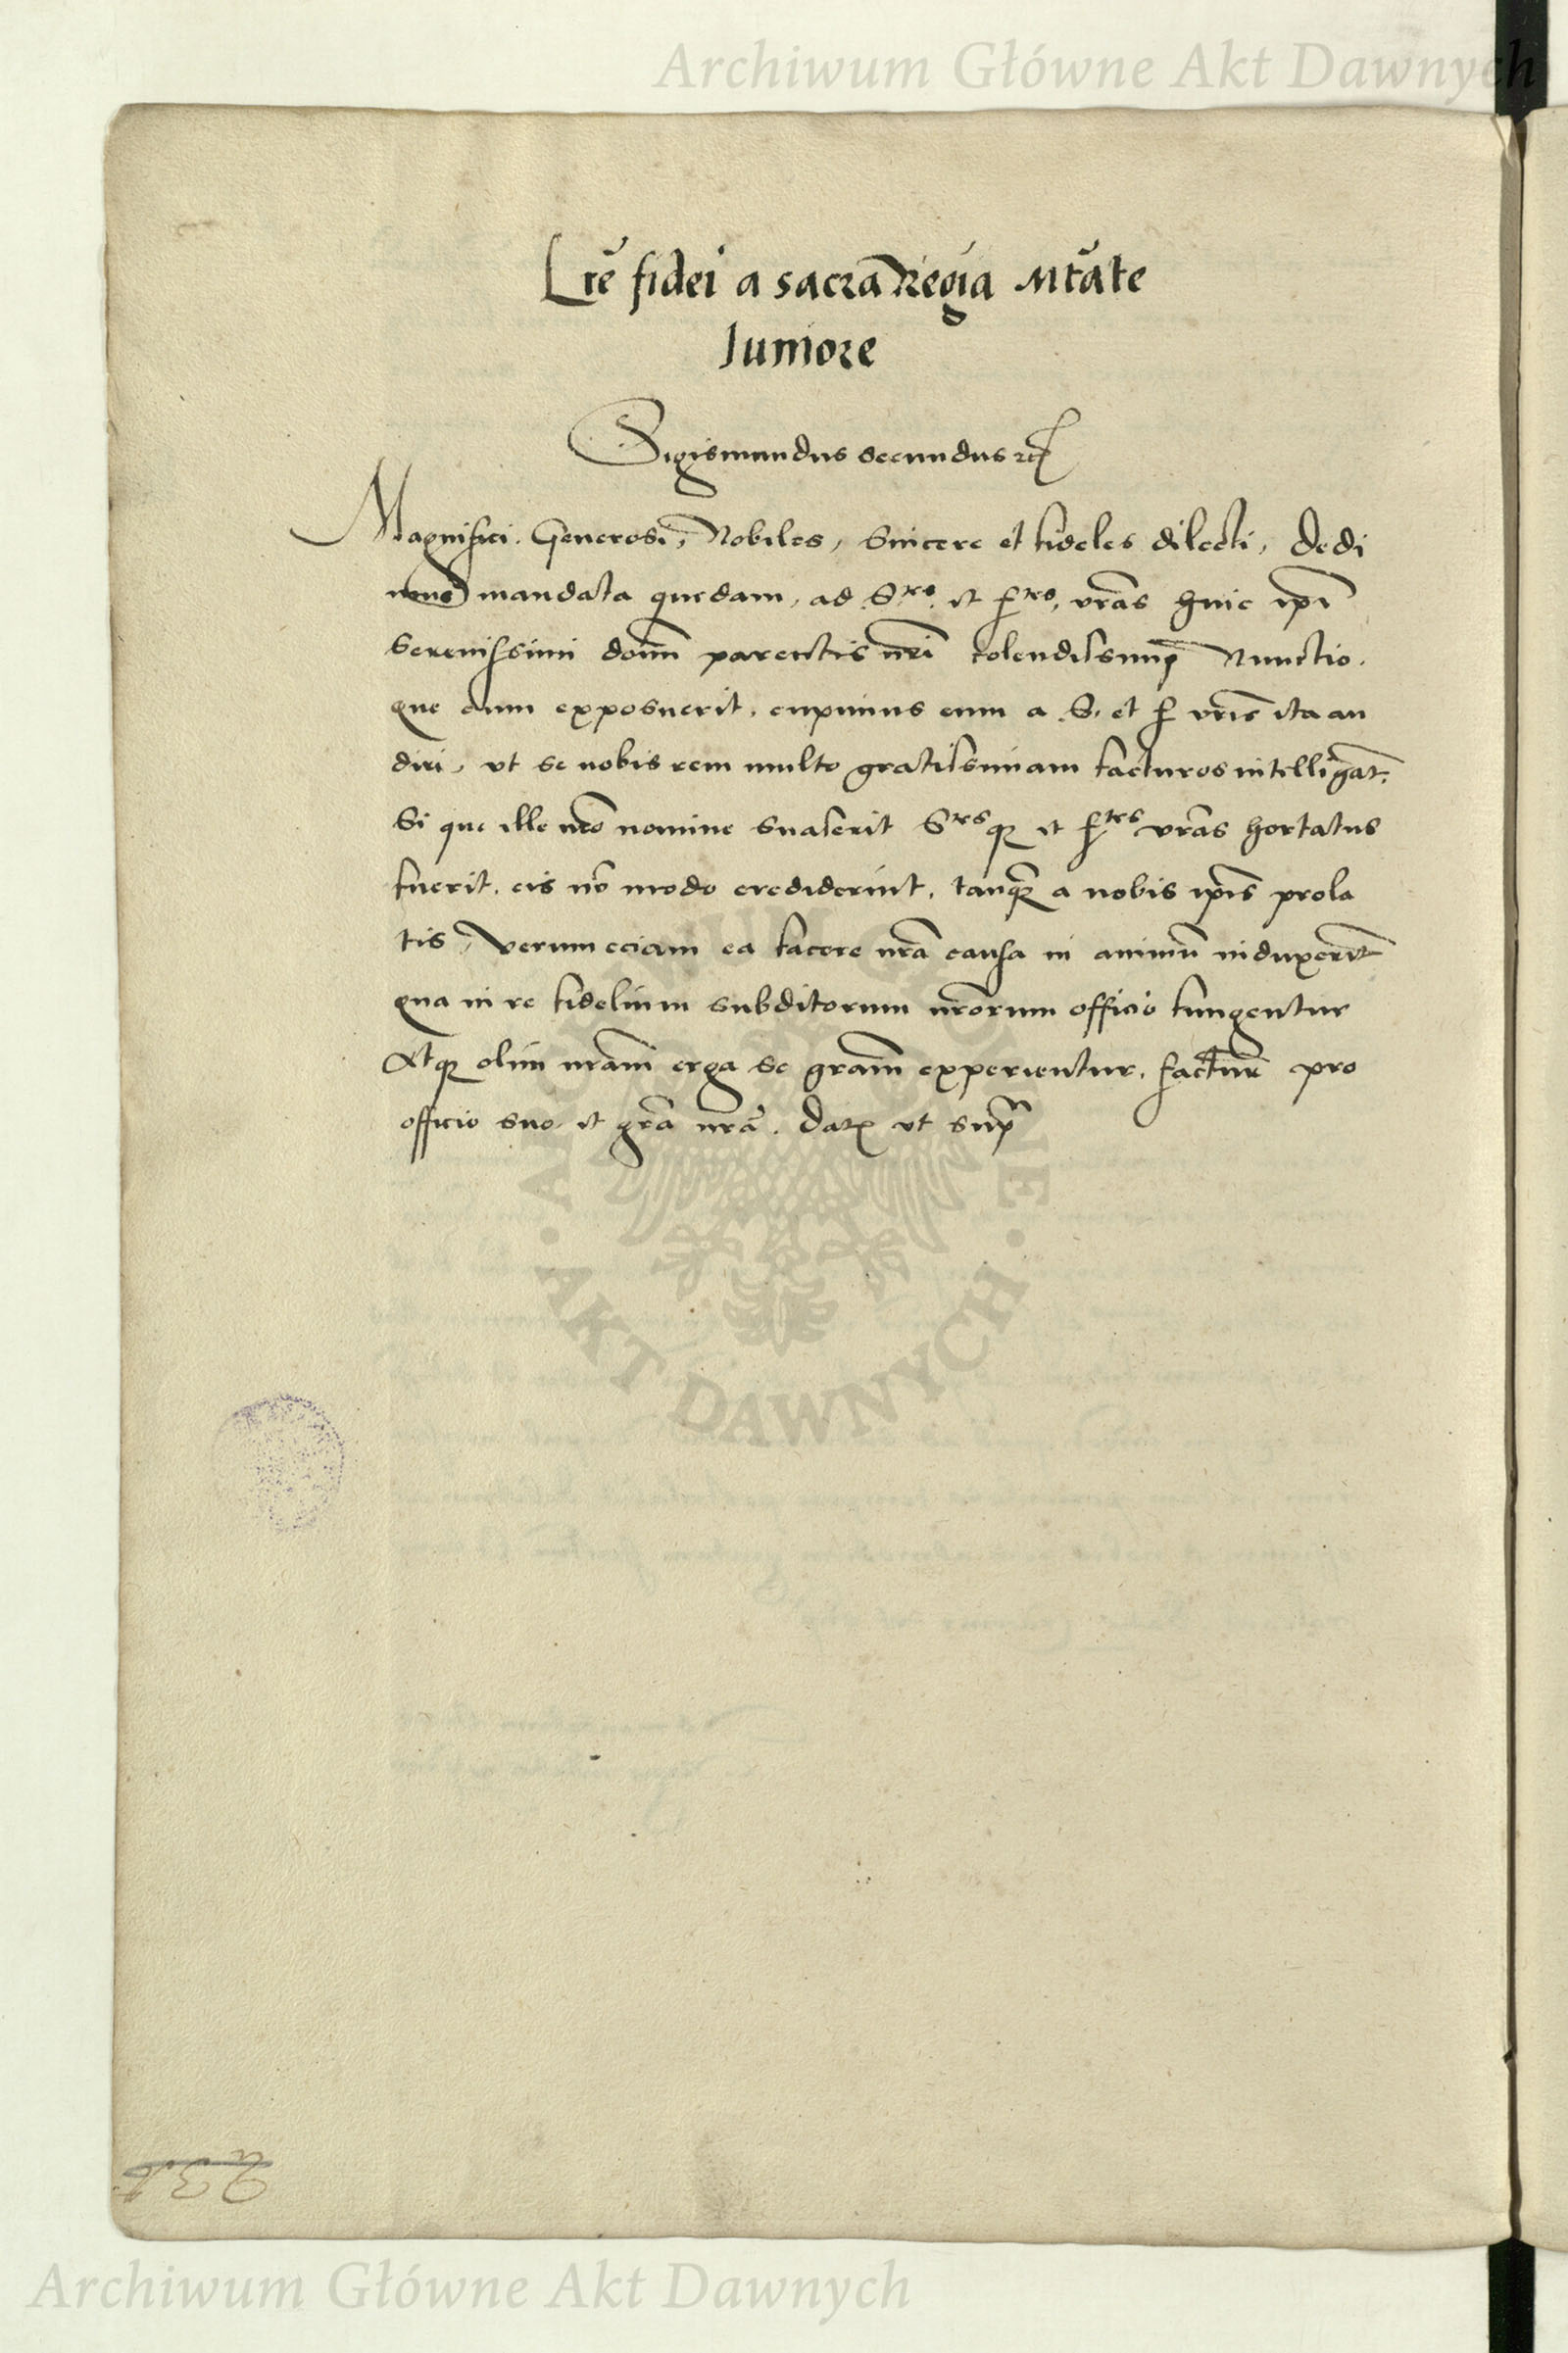 Archiwum Główne Akt Dawnych
Lrē fidei a sacra Regia Mtāte
Iuniore
Sigismundus secundus etc
Magnifici. Generosi, Nobiles, Sincere et fideles dilecti, Dedi
mus mandata quedam, ad S.tes. et f.tes, vrās huic ipī
Serenissimi domī parentis nrī colendissimiq Nunctio.
que dum exposuerit. cupimus eum a S. et f vrīs ita au
diri, vt se nobis rem multo gratissimam facturos intelligāt.
Si que ille nrō nomine suaserit Stesq et ftes vrās hortatus
fuerit. eis nō modo crediderint. tanq̄ a nobis ipīs prola
tis, verum eciam ea facere nrā causa in animū induxerīt
qua in re fidelium subditorum nrōrum officio fungentur
Atq olim nrām erga se grām experientur. factur̄ pro
officio suo et grā nrā. Dat vt sup̄
ARCHIWUM GŁÓWNE · AKT DAWNYCH ·
Archiwum Główne Akt Dawnych